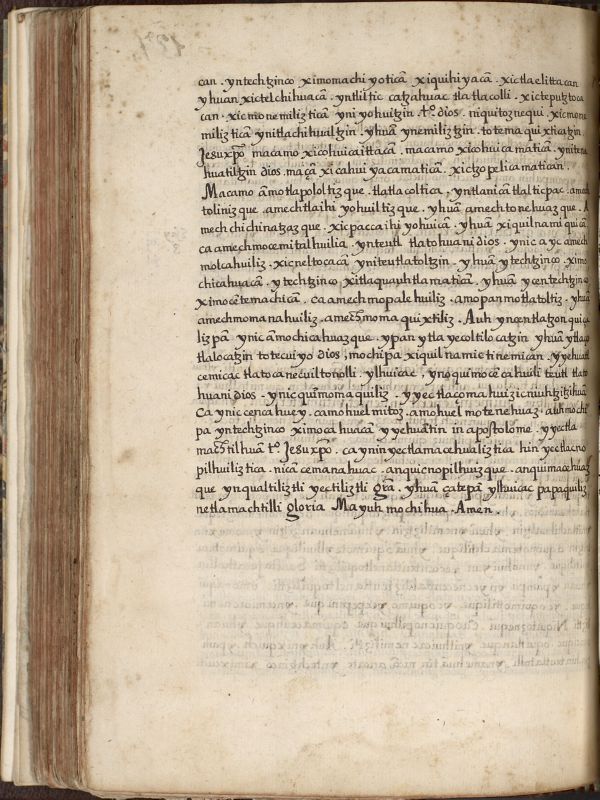 can . yntechtzinco ximomachiyoticā xiquihiyacā . xictlaelittacan
yhuan xictelchihuacā . yntliltic catzahuac tlatlacolli . xicteputztoca
can . xicmonemilizticā yni yohuitzin tº dios . niquitoznequi . xicmone
miliztīcā ynitlachihualtzin . yhuā ynemiliztzin . totemaquixticatzin
Jesuxpō macamo xicohuicaittacā . macamo xicohuicamaticā . ynitena
huatiltzin dios . maçā xicahuiyacamaticā . xictzopelicamatican .
Macamo āmotlapololtizque . tlatlacoltica , yntlanicā tlalticpac . amech
tolinizque . amechtlaihiyohuiltizque . yhuā amechtonehuazque . A
mechchichinatzazque . xicpaccaihiyohuicā . yhuā xiquilnamiquicā
ca amechmocemitalhuilia . ynteutl tlatohuani dios . ynic ayc amech
molcahuiliz . xicneltocacā yniteutlatoltzin . yhuā ytechtzinco . ximo
chicahuacā . ytechtzinco xitlaquauhtlamaticā . yhuā ycentechtzinco
ximocētemachicā . ca amechmopalehuiliz . amopanmotlatoltiz . yhuā
amechmomanahuiliz , amechmomaquixtiliz . Auh yncentlatzonquiça
lizpā ynic āmochicahuazque . ypan ytlayecoltilocatzin yhuā ytlaço
tlalocatzin totecuiyo dios , mochipa xiquilnamictinemican . yyehuatl
cemicac tlatocanecuiltonolli . ylhuicac , ynoquimocēcahuili teutl tlato
huani dios . ynic quimomaquiliz . yyectlaçomahuizicniuhtzitzihuā
Ca ynic cenca huey . camo huel mitoz . amo huel motenehuaz . auh mochi
pa yntechtzinco ximocahuacā yyehuātin in apostolome . yyectla
machtilhuā tº Jesuxpō . ca ynin yectlamacehualiztica hin yectlacno
pilhuiliztica . nicā cemanahuac . anquicnopilhuizque . anquimacehuaz
que ynqualtiliztli yectiliztli grā . yhuā çatepā ylhuicac papaquiliz
netlamachtilli gloria Mayuh mochihua . Amen .